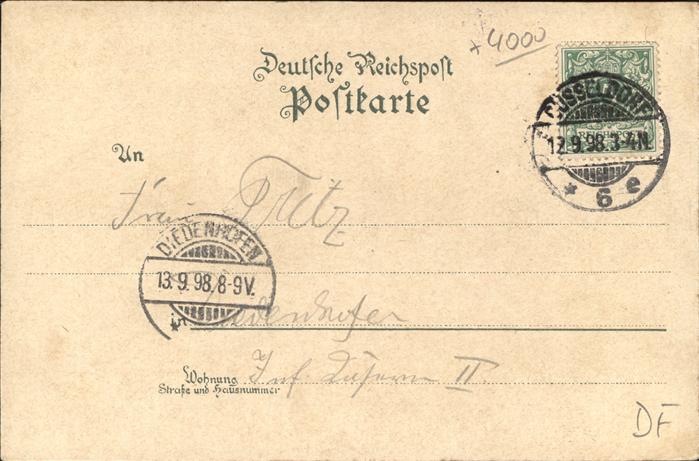 4000
Deutsche Reichspost
Postkarte
DÜSSELDORF
12.9.98.3-4N.
* 6 e
An
Frau Fritz
DIEDENHOFEN
13.9.98.8-9V.
in Diedenhofen
Wohnung Inf. II
Straße und Hausnummer
DF